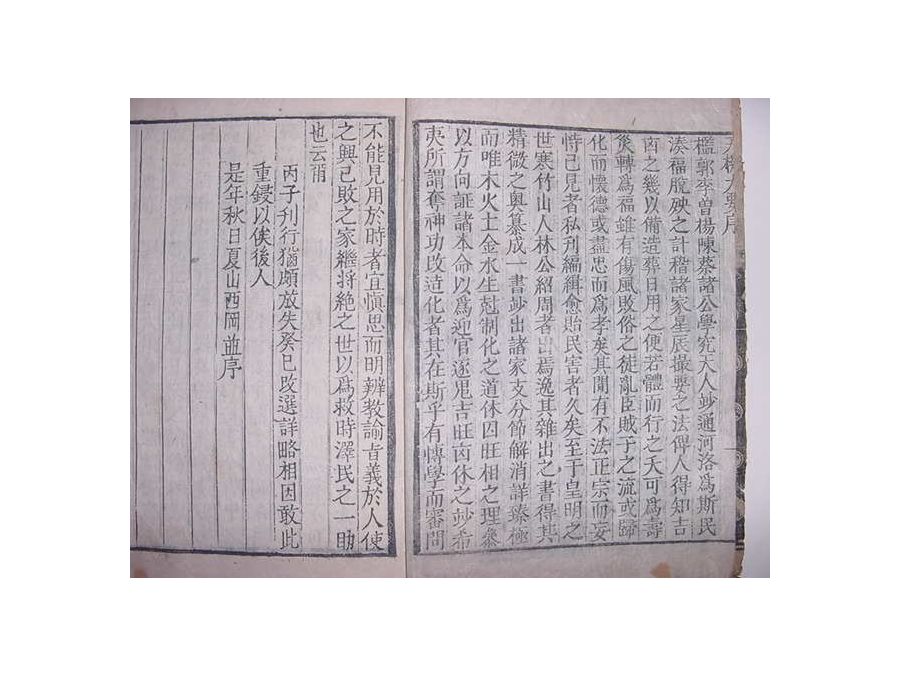 天機大要序
檻郭李曾楊陳蔡諸公學究天人妙通河洛爲斯民
湊福脫殃之計稽諸家星辰撮要之法俾人得知吉
凶之幾以備造葬日用之便若體而行之夭可爲壽
災轉爲福雖有傷風敗俗之徒亂臣賊子之流或歸
化而懷德或盡忠而爲孝矣其間有不法正宗而妄
恃己見者私利編緝愈貽民害者久矣至于皇明之
世寒竹山人林公紹周者出焉逸其雜出之書得其
精微之奧纂成一書妙出諸家支分節解消詳臻極
而唯木火土金水生尅制化之道休囚旺相之理叅
以方向証諸本命以爲迎官逐鬼吉旺凶休之妙希
夷所謂奪神功改造化者其在斯乎有博學而審問
不能見用於時者宜愼思而明辨教諭旨義於人使
之興已敗之家繼將絶之世以爲救時澤民之一助
也云爾
丙子刊行猶頗放失癸巳改選詳略相因敢此
重鋟以俟後人
是年秋日夏山西岡並序